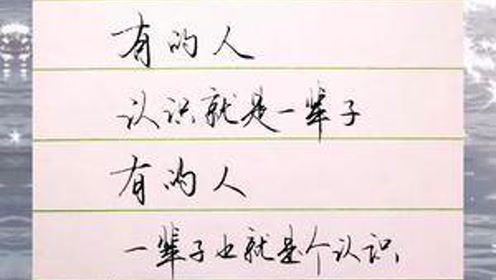 有的人
认识就是一辈子
有的人
一辈子也就是个认识